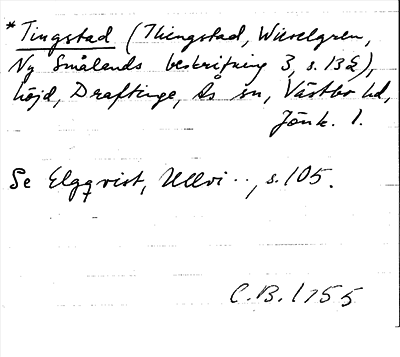 *Tingstad (Thingstad, Wieselgren,
Ny Smålands beskrifning 3, s. 132),
höjd, Draftinge, Ås sn, Västbo hd,
Jönk. l.
Se Elgqvist, Ullvi.., s. 105.
C.B. 1755